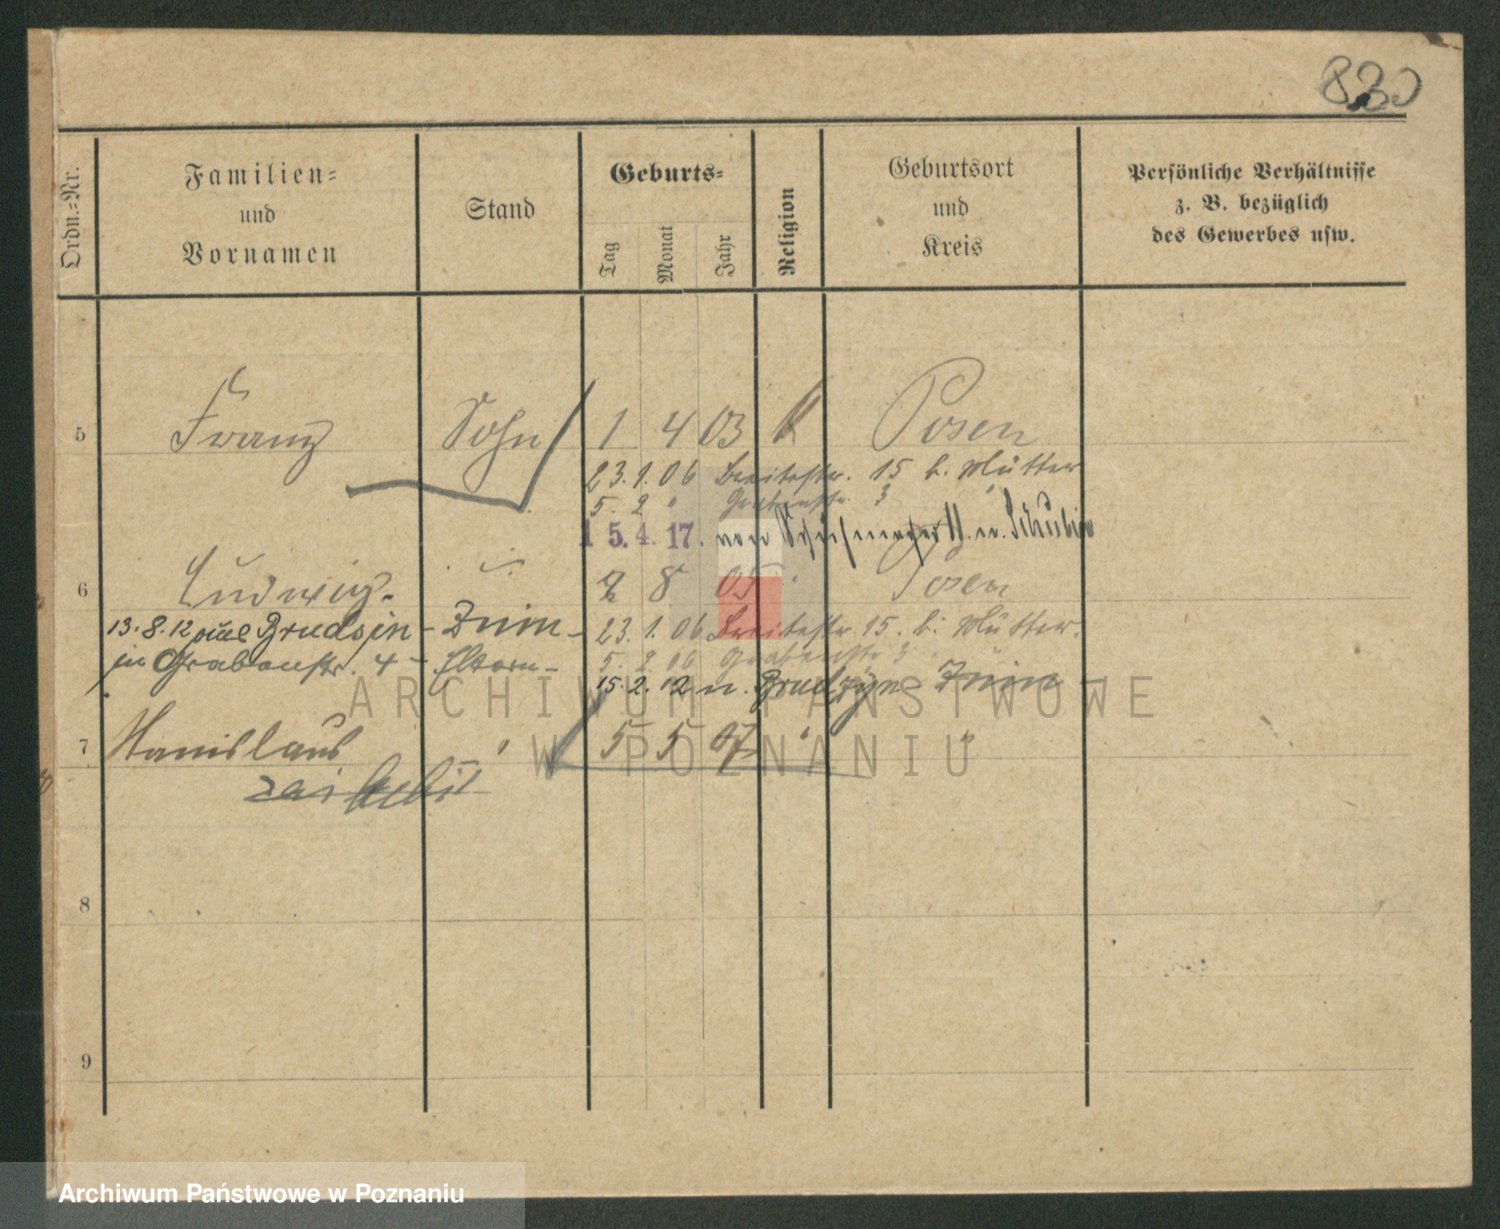 830
Ordn.=Nr.
Familien=
und
Vornamen
Stand
Geburts=
Tag
Monat
Jahr
Religion
Geburtsort
und
Kreis
Persönliche Verhältnisse
z. B. bezüglich
des Gewerbes usw.
5 Franz Sohn 1 4 03 k Posen
23. 1. 06 Breitestr. 15 b. Mutter
5. 2 " Grabenstr. 3
15. 4. 17. von
6 Ludwig " 2 8 05 " Posen
13. 8. 12 Brudsin - Znin -
in Grabenstr. 4 - Eltern -
23. 1. 06 Breitestr. 15. b. Mutter.
5. 2 06 Grabenstr 3
15. 2. 12 n. Brudzyn Znin -
7 Stanislaus " 5 5 07 " "
8
9
ARCHIWUM PAŃSTWOWE
W POZNANIU
Archiwum Państwowe w Poznaniu